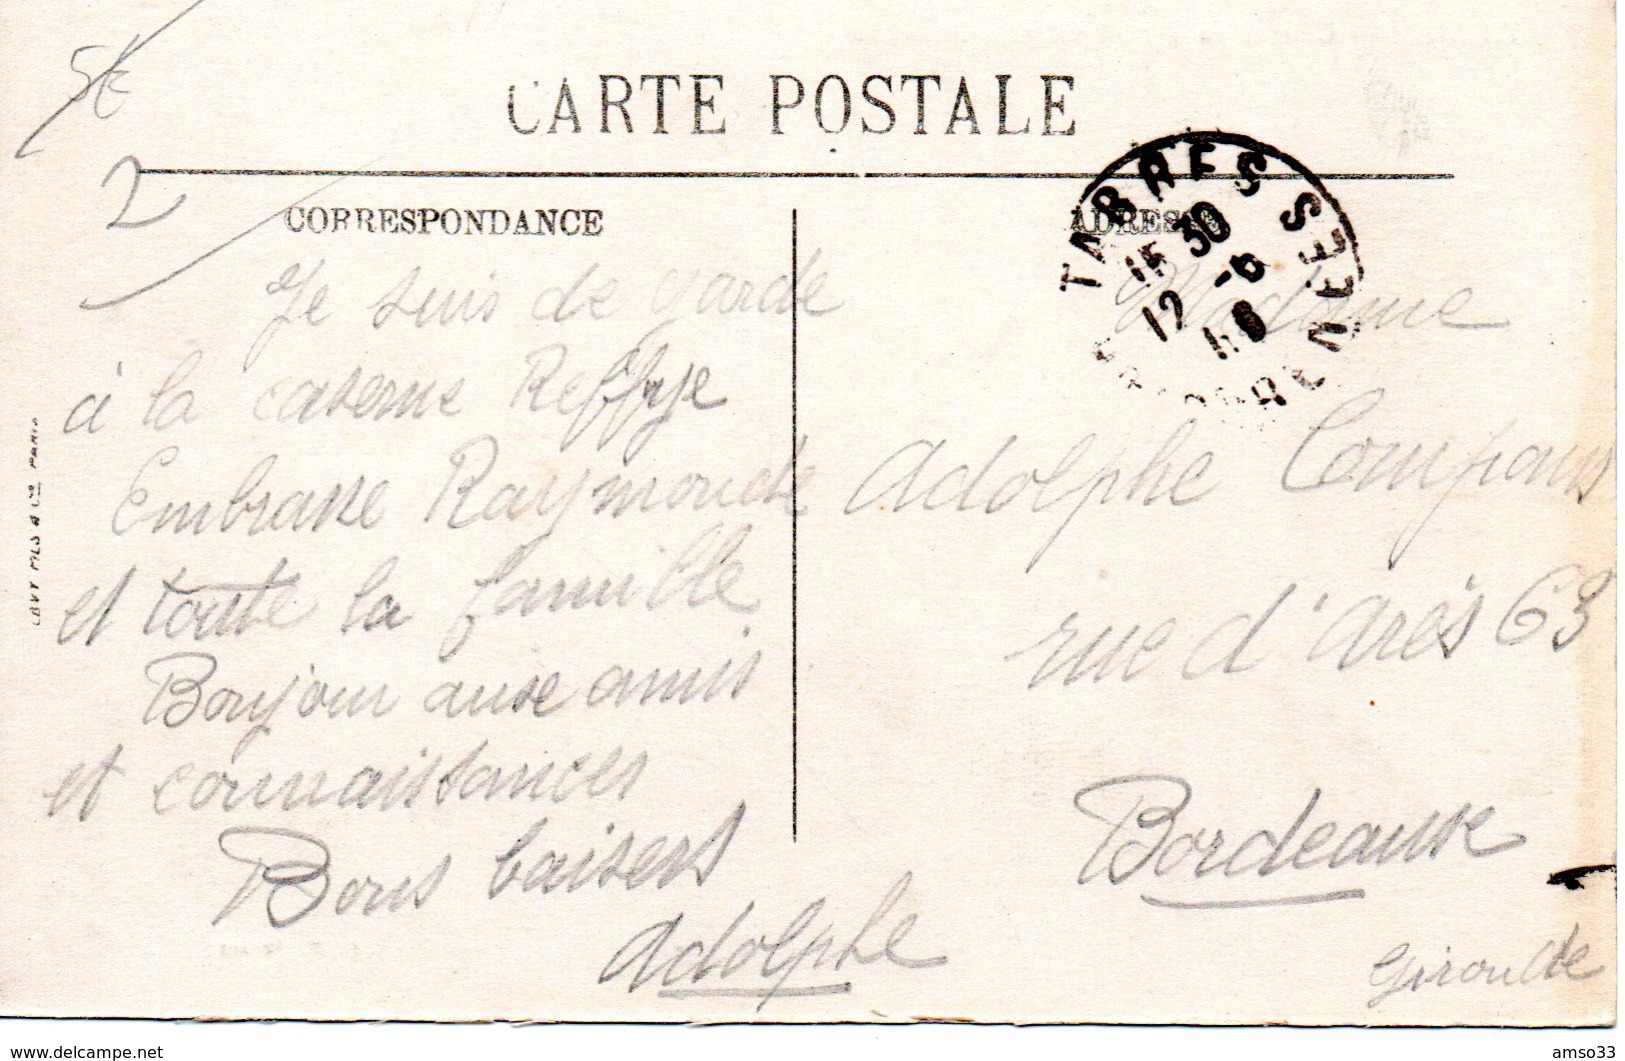 5€
CARTE POSTALE
2
CORRESPONDANCE
Je suis de garde
à la caserne Reffye
Embrasse Raymonde
et toute la famille
Bonjour aux amis
et connaissances
Bons baisers
Adolphe
LEVY FILS & Cie PARIS
ADRESSE
TARBES
15 30
12 -6
PYRENEES
Madame
Adolphe Compans
rue d'Arès 63
Bordeaux
Gironde
www.delcampe.net
amso33